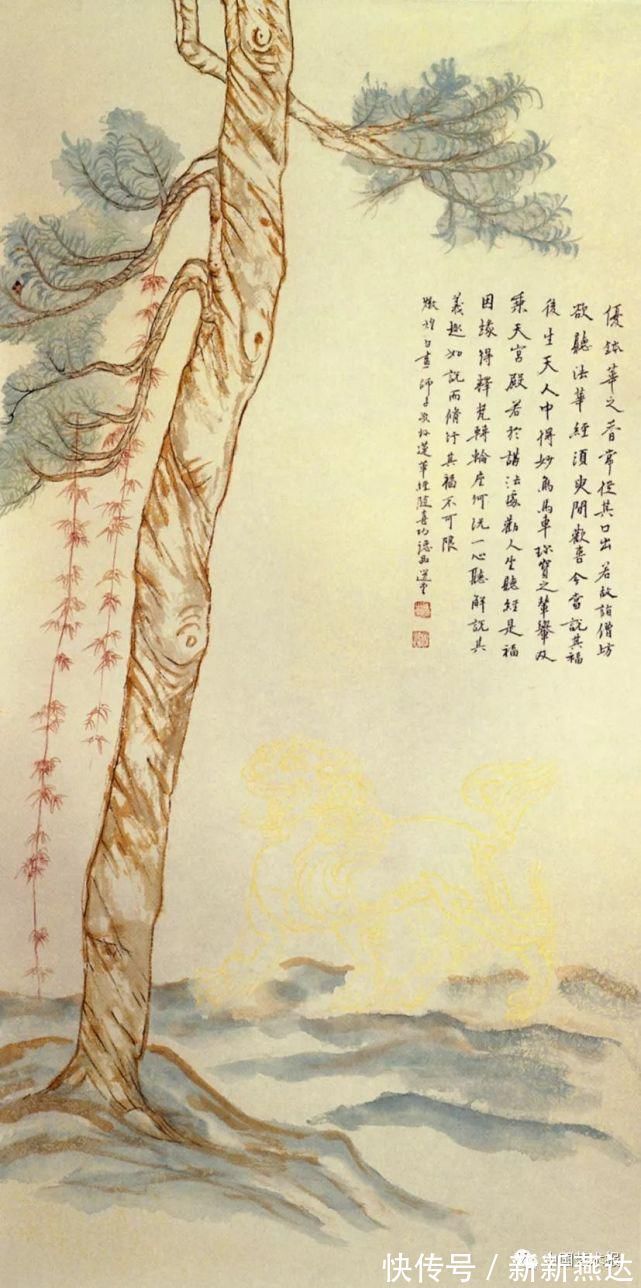 優鉢華之香常從其口出若故詣僧坊
欲聽法華經須臾聞歡喜今當說其福
後生天人中得妙象馬車珍寶之輦轝及
乘天宮殿若於講法處勸人坐聽經是福
因緣得釋梵轉輪座何況一心聽解說其
義趣如說而脩行其福不可限
燉煌白畫師子妙蓮華經隨喜功德品選堂
快传号／新新燕达